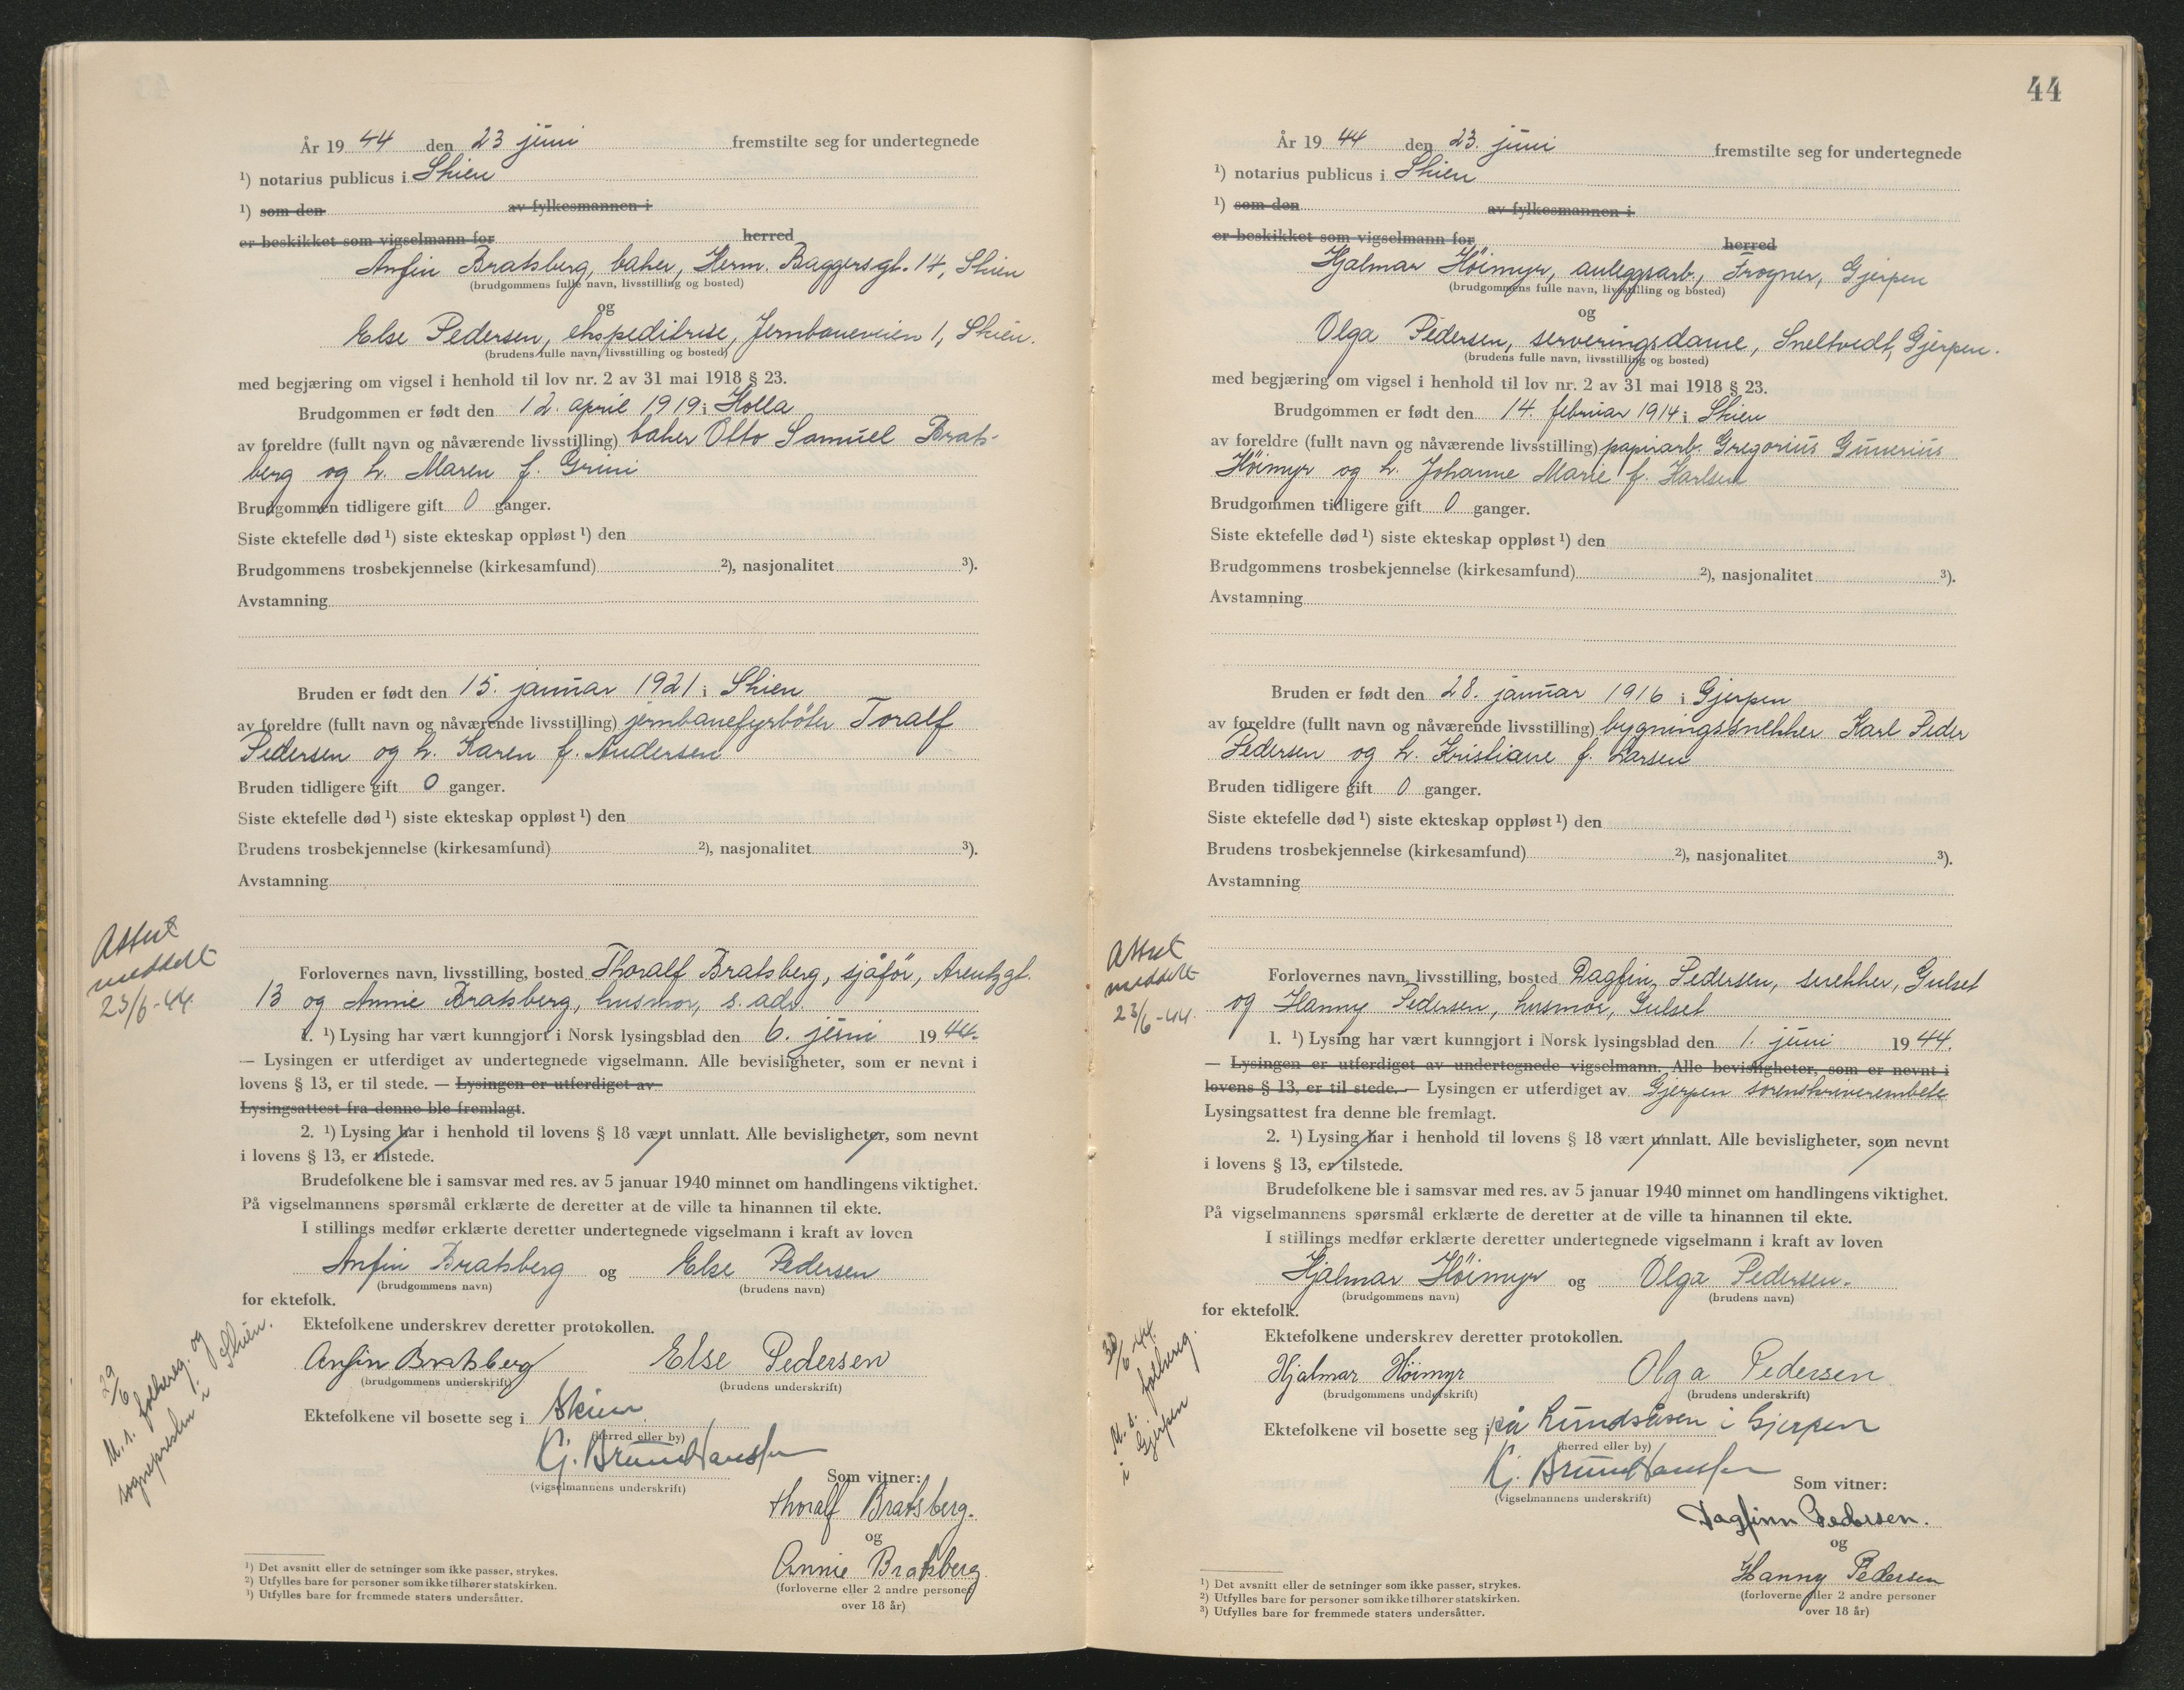 År 19 44 den 23 juni fremstilte seg for undertegnede
¹) notarius publicus i Skien
¹) som den av fylkesmannen i
er beskikket som vigselmann for herred
Anfin Bratsberg, baker, Herm. Baggersgt. 14, Skien
(brudgommens fulle navn, livsstilling og bosted)
og
Else Pedersen, ekspeditrise, Jernbaneveien 1, Skien.
(brudens fulle navn, livsstilling og bosted)
med begjæring om vigsel i henhold til lov nr. 2 av 31 mai 1918 § 23.
Brudgommen er født den 12. april 1919 i Holla
av foreldre (fullt navn og nåværende livsstilling) baker Otto Samuel Brats-
berg og h. Maren f. Grini
Brudgommen tidligere gift 0 ganger.
Siste ektefelle død ¹) siste ekteskap oppløst ¹) den
Brudgommens trosbekjennelse (kirkesamfund) ²), nasjonalitet ³).
Avstamning
Bruden er født den 15. januar 1921 i Skien
av foreldre (fullt navn og nåværende livsstilling) jernbanefyrböter Toralf
Pedersen og h. Karen f. Andersen
Bruden tidligere gift 0 ganger.
Siste ektefelle død ¹) siste ekteskap oppløst ¹) den
Brudens trosbekjennelse (kirkesamfund) ²), nasjonalitet ³).
Avstamning
Attest
meddelt
23/6-44.
Forlovernes navn, livsstilling, bosted Thoralf Bratsberg, sjåför, Arentzgt.
13 og Annie Bratsberg, husmor, s. adr.
1. ¹) Lysing har vært kunngjort i Norsk lysingsblad den 6. juni 1944.
— Lysingen er utferdiget av undertegnede vigselmann. Alle bevisligheter, som er nevnt i
lovens § 13, er til stede. — Lysingen er utferdiget av
Lysingsattest fra denne ble fremlagt.
2. ¹) Lysing har i henhold til lovens § 18 vært unnlatt. Alle bevisligheter, som nevnt
i lovens § 13, er tilstede.
Brudefolkene ble i samsvar med res. av 5 januar 1940 minnet om handlingens viktighet.
På vigselmannens spørsmål erklærte de deretter at de ville ta hinannen til ekte.
I stillings medfør erklærte deretter undertegnede vigselmann i kraft av loven
Anfin Bratsberg og Else Pedersen
(brudgommens navn) (brudens navn)
for ektefolk.
Ektefolkene underskrev deretter protokollen.
Anfin Bratsberg Else Pedersen
(brudgommens underskrift) (brudens underskrift)
Ektefolkene vil bosette seg i Skien
(herred eller by)
29/6
M. s. folkereg. og
sognepresten i Skien.
(vigselmannens underskrift)
Som vitner:
Thoralf Bratsberg.
og
Annie Bratsberg
(forloverne eller 2 andre personer
over 18 år)
¹) Det avsnitt eller de setninger som ikke passer, strykes.
²) Utfylles bare for personer som ikke tilhører statskirken.
³) Utfylles bare for fremmede staters undersåtter.
44
År 19 44 den 23. juni fremstilte seg for undertegnede
¹) notarius publicus i Skien
¹) som den av fylkesmannen i
er beskikket som vigselmann for herred
Hjalmar Höimyr, anleggsarb., Frogner, Gjerpen
(brudgommens fulle navn, livsstilling og bosted)
og
Olga Pedersen, serveringsdame, Sneltvedt, Gjerpen.
(brudens fulle navn, livsstilling og bosted)
med begjæring om vigsel i henhold til lov nr. 2 av 31 mai 1918 § 23.
Brudgommen er født den 14. februar 1914 i Skien
av foreldre (fullt navn og nåværende livsstilling) papirarb. Gregorius Gunerius
Höimyr og h. Johanne Marie f. Karlsen
Brudgommen tidligere gift 0 ganger.
Siste ektefelle død ¹) siste ekteskap oppløst ¹) den
Brudgommens trosbekjennelse (kirkesamfund) ²), nasjonalitet ³).
Avstamning
Bruden er født den 28. januar 1916 i Gjerpen
av foreldre (fullt navn og nåværende livsstilling) bygningssnekker Karl Peder
Pedersen og h. Kristiane f. Larsen
Bruden tidligere gift 0 ganger.
Siste ektefelle død ¹) siste ekteskap oppløst ¹) den
Brudens trosbekjennelse (kirkesamfund) ²), nasjonalitet ³).
Avstamning
Attest
meddelt
23/6-44.
Forlovernes navn, livsstilling, bosted Dagfin Pedersen, snekker, Gulset
og Hanny Pedersen, husmor, Gulset
1. ¹) Lysing har vært kunngjort i Norsk lysingsblad den 1. juni 1944.
— Lysingen er utferdiget av undertegnede vigselmann. Alle bevisligheter, som er nevnt i
lovens § 13, er til stede. — Lysingen er utferdiget av Gjerpen sorenskriverembete
Lysingsattest fra denne ble fremlagt.
2. ¹) Lysing har i henhold til lovens § 18 vært unnlatt. Alle bevisligheter, som nevnt
i lovens § 13, er tilstede.
Brudefolkene ble i samsvar med res. av 5 januar 1940 minnet om handlingens viktighet.
På vigselmannens spørsmål erklærte de deretter at de ville ta hinannen til ekte.
I stillings medfør erklærte deretter undertegnede vigselmann i kraft av loven
Hjalmar Höimyr og Olga Pedersen.
(brudgommens navn) (brudens navn)
for ektefolk.
Ektefolkene underskrev deretter protokollen.
Hjalmar Höimyr Olga Pedersen
(brudgommens underskrift) (brudens underskrift)
Ektefolkene vil bosette seg i på Lundsåsen i Gjerpen
(herred eller by)
30/6-44.
M. s. folkereg.
i Gjerpen
(vigselmannens underskrift)
Som vitner:
Dagfinn Pedersen.
og
Hanny Pedersen
(forloverne eller 2 andre personer
over 18 år)
¹) Det avsnitt eller de setninger som ikke passer, strykes.
²) Utfylles bare for personer som ikke tilhører statskirken.
³) Utfylles bare for fremmede staters undersåtter.